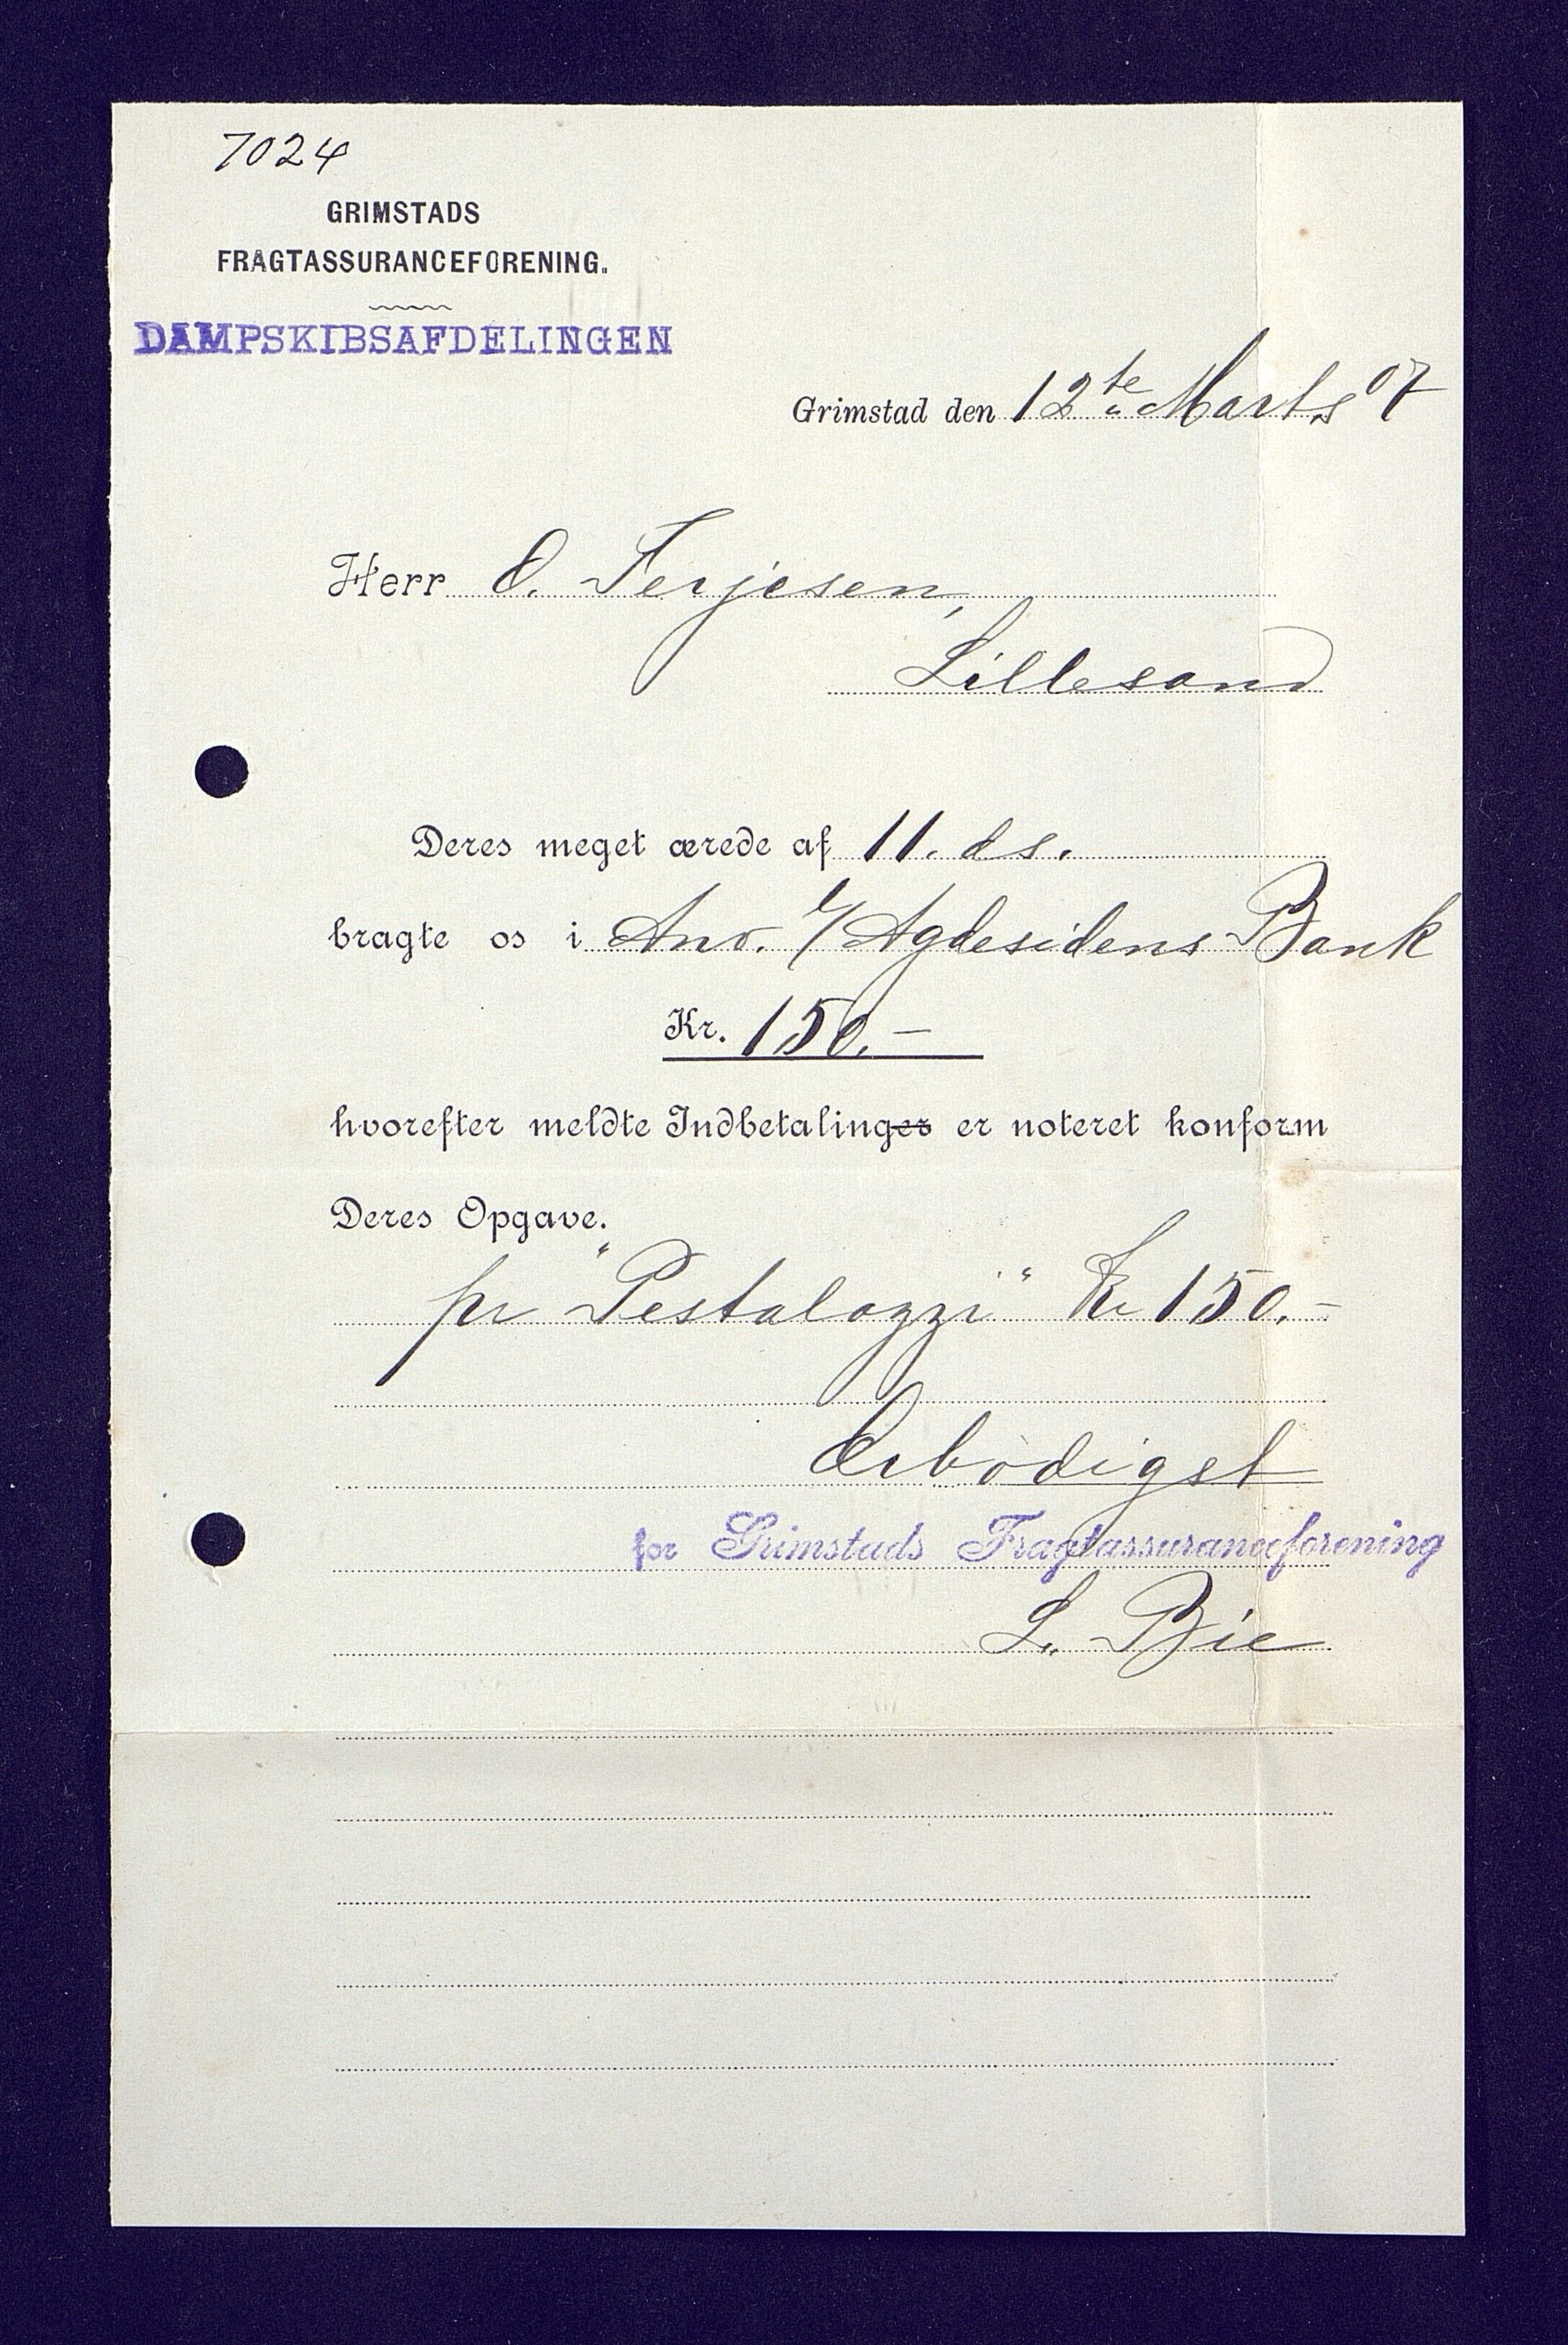 7024
GRIMSTADS
FRAGTASSURANCEFORENING.
DAMPSKIBSAFDELINGEN
Grimstad den 12te Marts 07
Herr O. Terjesen,
Lillesand
Deres meget ærede af 11. ds.
bragte os i Anv. t/ Agdesidens Bank
Kr. 150.-
hvorefter meldte Indbetalinger er noteret konform
Deres Opgave.
pr "Pestalozzi" Kr 150.-
Ærbødigst
for Grimstads Fragtassuranceforening
L. Bie